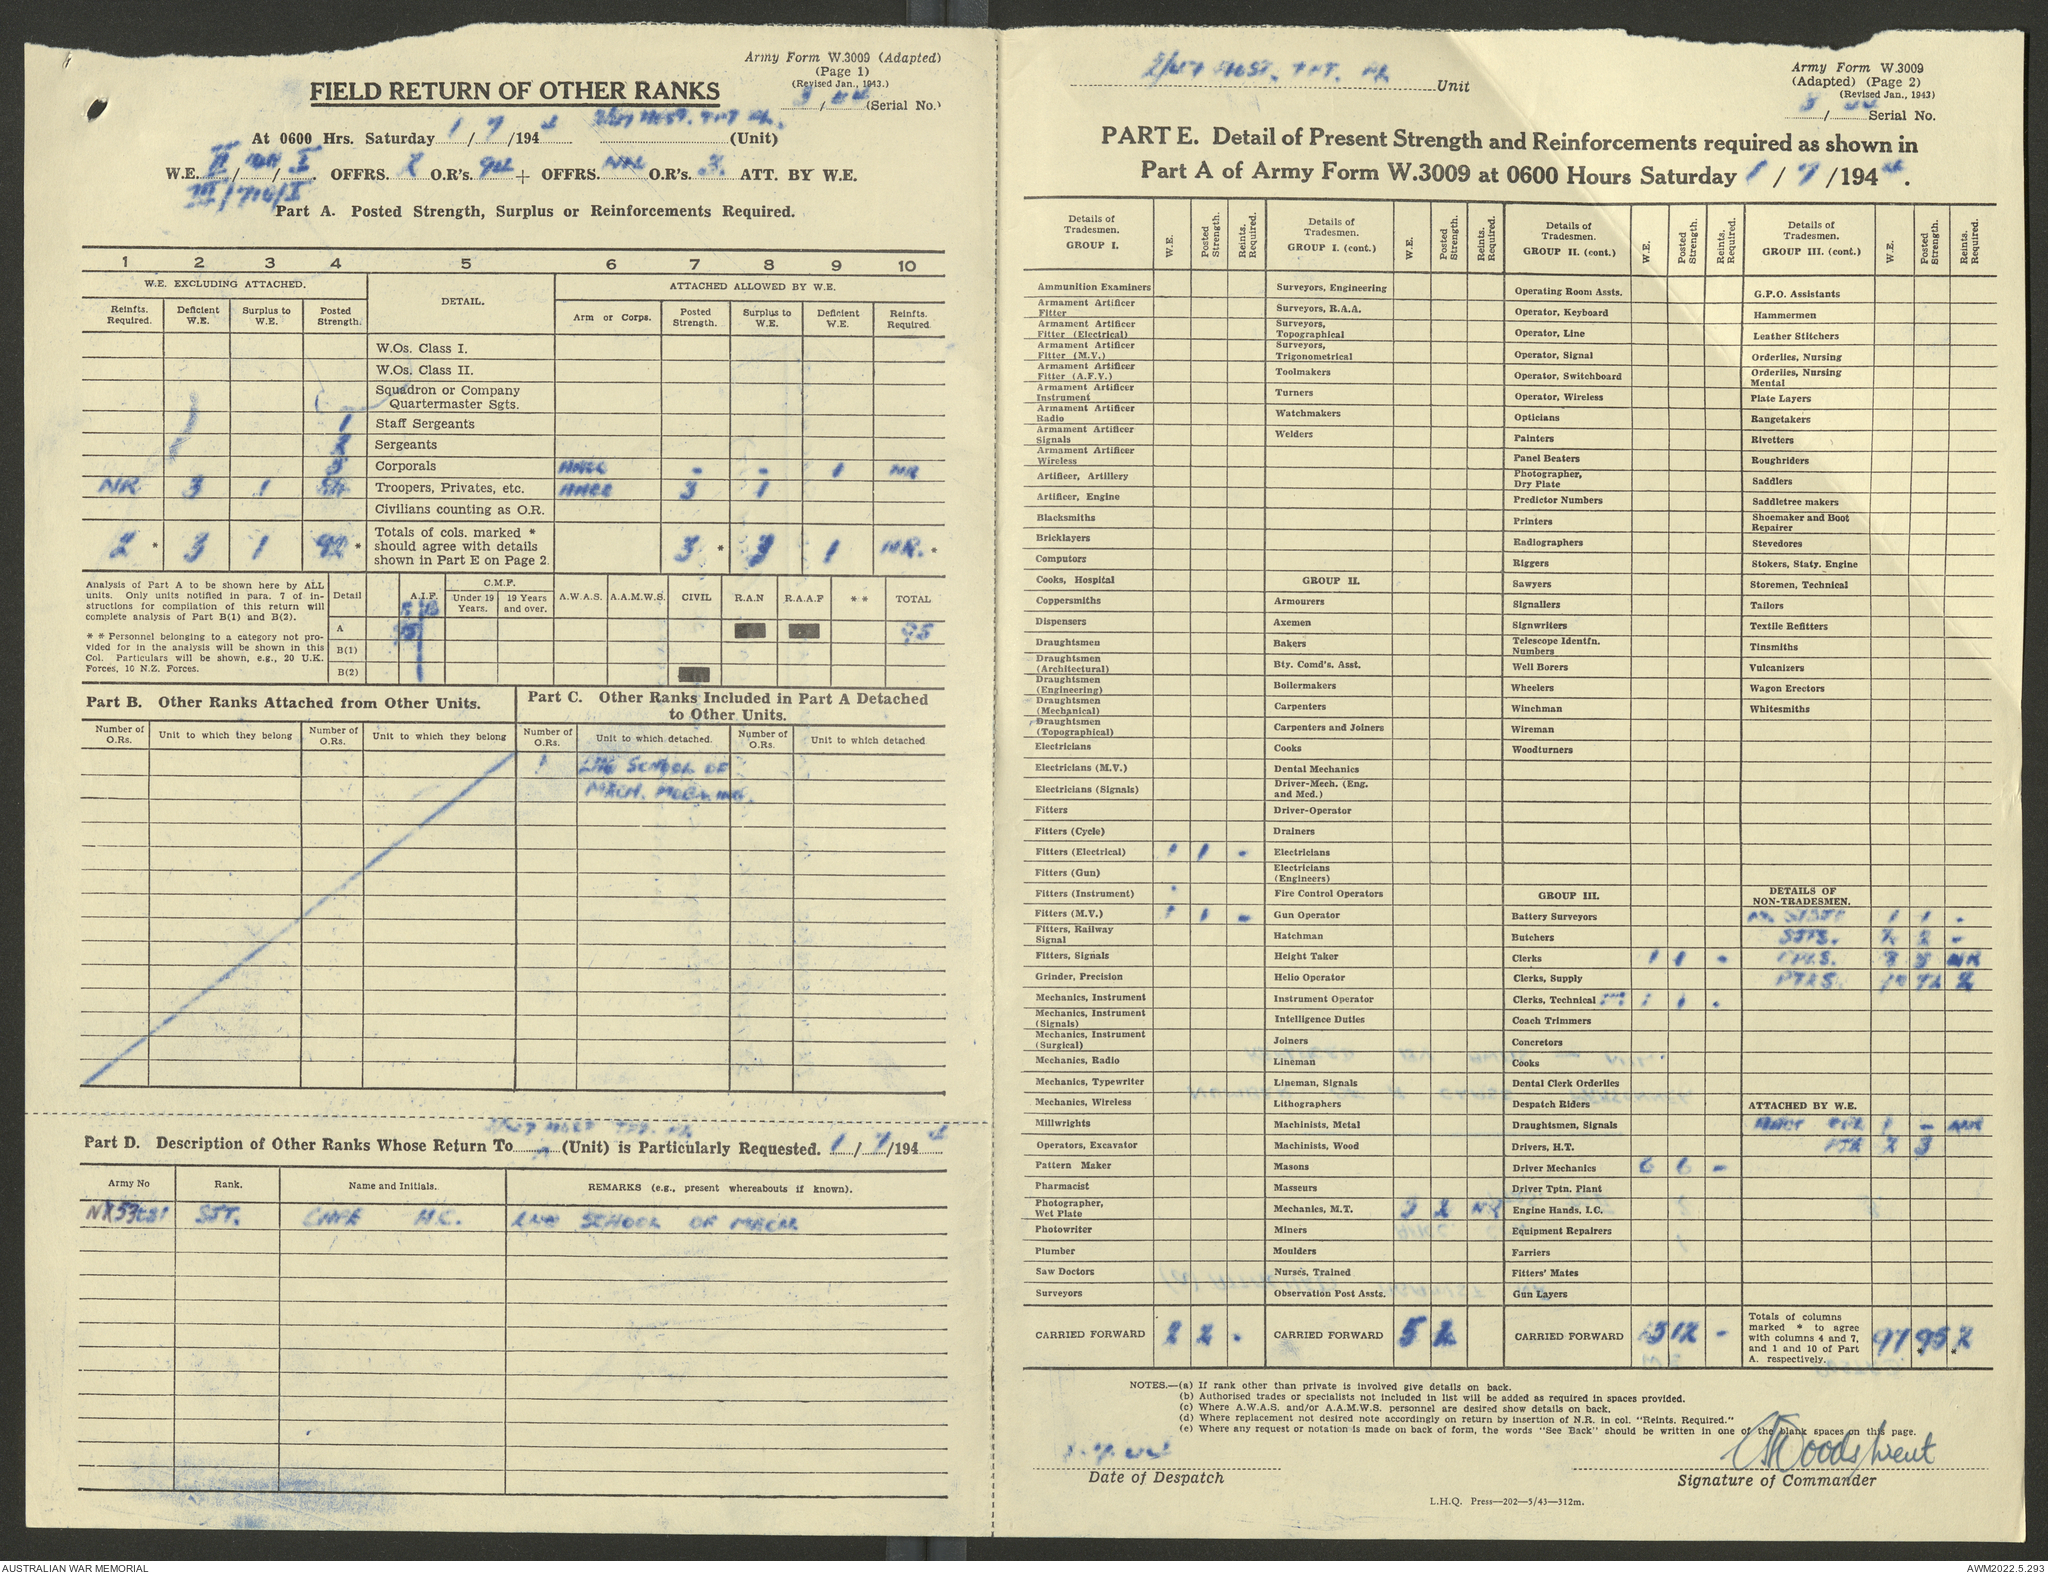 Army Form W.3009 (Adapted)
(Page 1)
(Revised Jan., 1943.)
FIELD RETURN OF OTHER RANKS
3 / 44 (Serial No.)
At 0600 Hrs. Saturday 1 / 7 /194 4 (Unit)
W.E. II / / I. OFFRS. 2 O.R's. 94 + OFFRS. O.R's. 3. ATT. BY W.E.
III/710/I
Part A. Posted Strength, Surplus or Reinforcements Required.
1 2 3 4 5 6 7 8 9 10
W.E. EXCLUDING ATTACHED. DETAIL. ATTACHED ALLOWED BY W.E.
Reinfts. Required. Deficient W.E. Surplus to W.E. Posted Strength. Arm or Corps. Posted Strength. Surplus to W.E. Deficient W.E. Reinfts. Required.
W.Os. Class I.
W.Os. Class II.
Squadron or Company
Quartermaster Sgts.
1 Staff Sergeants
2 Sergeants
5 Corporals AMCC - - 1 NR
NR 3 1 84 Troopers, Privates, etc. AMCC 3 1
Civilians counting as O.R.
2 * 3 1 92 * Totals of cols. marked * should agree with details shown in Part E on Page 2. 3 * 3 1 NR. *
Analysis of Part A to be shown here by ALL
units. Only units notified in para. 7 of in-
structions for compilation of this return will
complete analysis of Part B(1) and B(2).
* * Personnel belonging to a category not pro-
vided for in the analysis will be shown in this
Col. Particulars will be shown, e.g., 20 U.K.
Forces, 10 N.Z. Forces.
Detail A.I.F. C.M.F. Under 19 Years. 19 Years and over. A.W.A.S. A.A.M.W.S. CIVIL R.A.N R.A.A.F * * TOTAL
A 95
B(1)
B(2)
Part B. Other Ranks Attached from Other Units.
Part C. Other Ranks Included in Part A Detached
to Other Units.
Number of O.Rs. Unit to which they belong Number of O.Rs. Unit to which they belong Number of O.Rs. Unit to which detached. Number of O.Rs. Unit to which detached
1 LHQ SCHOOL OF
MECH.
Part D. Description of Other Ranks Whose Return To (Unit) is Particularly Requested. 1 / 7 /194 4
Army No Rank. Name and Initials. REMARKS (e.g., present whereabouts if known).
SJT. H.C. LHQ SCHOOL OF MECH
2/ HOST. TPT. PL Unit
Army Form W.3009
(Adapted) (Page 2)
(Revised Jan., 1943)
3 / 44 Serial No.
PART E. Detail of Present Strength and Reinforcements required as shown in
Part A of Army Form W.3009 at 0600 Hours Saturday 1 / 7 /194 4.
Details of Tradesmen. GROUP I. W.E. Posted Strength. Reints. Required.
Ammunition Examiners
Armament Artificer Fitter
Armament Artificer Fitter (Electrical)
Armament Artificer Fitter (M.V.)
Armament Artificer Fitter (A.F.V.)
Armament Artificer Instrument
Armament Artificer Radio
Armament Artificer Signals
Armament Artificer Wireless
Artificer, Artillery
Artificer, Engine
Blacksmiths
Bricklayers
Computors
Cooks, Hospital
Coppersmiths
Dispensers
Draughtsmen
Draughtsmen (Architectural)
Draughtsmen (Engineering)
Draughtsmen (Mechanical)
Draughtsmen (Topographical)
Electricians
Electricians (M.V.)
Electricians (Signals)
Fitters
Fitters (Cycle)
Fitters (Electrical) 1 1 -
Fitters (Gun)
Fitters (Instrument)
Fitters (M.V.) 1 1 -
Fitters, Railway Signal
Fitters, Signals
Grinder, Precision
Mechanics, Instrument
Mechanics, Instrument (Signals)
Mechanics, Instrument (Surgical)
Mechanics, Radio
Mechanics, Typewriter
Mechanics, Wireless
Millwrights
Operators, Excavator
Pattern Maker
Pharmacist
Photographer, Wet Plate
Photowriter
Plumber
Saw Doctors
Surveyors
CARRIED FORWARD 2 2 -
Details of Tradesmen. GROUP I. (cont.) W.E. Posted Strength. Reints. Required.
Surveyors, Engineering
Surveyors, R.A.A.
Surveyors, Topographical
Surveyors, Trigonometrical
Toolmakers
Turners
Watchmakers
Welders
GROUP II.
Armourers
Axemen
Bakers
Bty. Comd's. Asst.
Boilermakers
Carpenters
Carpenters and Joiners
Cooks
Dental Mechanics
Driver-Mech. (Eng. and Med.)
Driver-Operator
Drainers
Electricians
Electricians (Engineers)
Fire Control Operators
Gun Operator
Hatchman
Height Taker
Helio Operator
Instrument Operator
Intelligence Duties
Joiners
Lineman
Lineman, Signals
Lithographers
Machinists, Metal
Machinists, Wood
Masons
Masseurs
Mechanics, M.T. 3 2 NR
Miners
Moulders
Nurses, Trained
Observation Post Assts.
CARRIED FORWARD 5 2
Details of Tradesmen. GROUP II. (cont.) W.E. Posted Strength. Reints. Required.
Operating Room Assts.
Operator, Keyboard
Operator, Line
Operator, Signal
Operator, Switchboard
Operator, Wireless
Opticians
Painters
Panel Beaters
Photographer, Dry Plate
Predictor Numbers
Printers
Radiographers
Riggers
Sawyers
Signallers
Signwriters
Telescope Identfn. Numbers
Well Borers
Wheelers
Winchman
Wireman
Woodturners
GROUP III.
Battery Surveyors
Butchers
Clerks 1 1 -
Clerks, Supply
Clerks, Technical 1 1 .
Coach Trimmers
Concretors
Cooks
Dental Clerk Orderlies
Despatch Riders
Draughtsmen, Signals
Drivers, H.T.
Driver Mechanics 6 6 -
Driver Tptn. Plant
Engine Hands, I.C.
Equipment Repairers
Farriers
Fitters' Mates
Gun Layers
CARRIED FORWARD 12 -
Details of Tradesmen. GROUP III. (cont.) W.E. Posted Strength. Reints. Required.
G.P.O. Assistants
Hammermen
Leather Stitchers
Orderlies, Nursing
Orderlies, Nursing Mental
Plate Layers
Rangetakers
Rivetters
Roughriders
Saddlers
Saddletree makers
Shoemaker and Boot Repairer
Stevedores
Stokers, Staty. Engine
Storemen, Technical
Tailors
Textile Refitters
Tinsmiths
Vulcanizers
Wagon Erectors
Whitesmiths
DETAILS OF NON-TRADESMEN.
1 1 -
SJTS. 2 2 -
CPLS. 5 NR
PTES. 72 2
ATTACHED BY W.E.
CPL 1 - NR
PTE 2 3
Totals of columns marked * to agree with columns 4 and 7, and 1 and 10 of Part A. respectively. 97 95 * 2 *
NOTES.—(a) If rank other than private is involved give details on back.
(b) Authorised trades or specialists not included in list will be added as required in spaces provided.
(c) Where A.W.A.S. and/or A.A.M.W.S. personnel are desired show details on back.
(d) Where replacement not desired note accordingly on return by insertion of N.R. in col. "Reints. Required."
(e) Where any request or notation is made on back of form, the words "See Back" should be written in one of the blank spaces on this page.
1.7.44
Date of Despatch
Signature of Commander
L.H.Q. Press—202—5/43—312m.
AUSTRALIAN WAR MEMORIAL
AWM2022.5.293